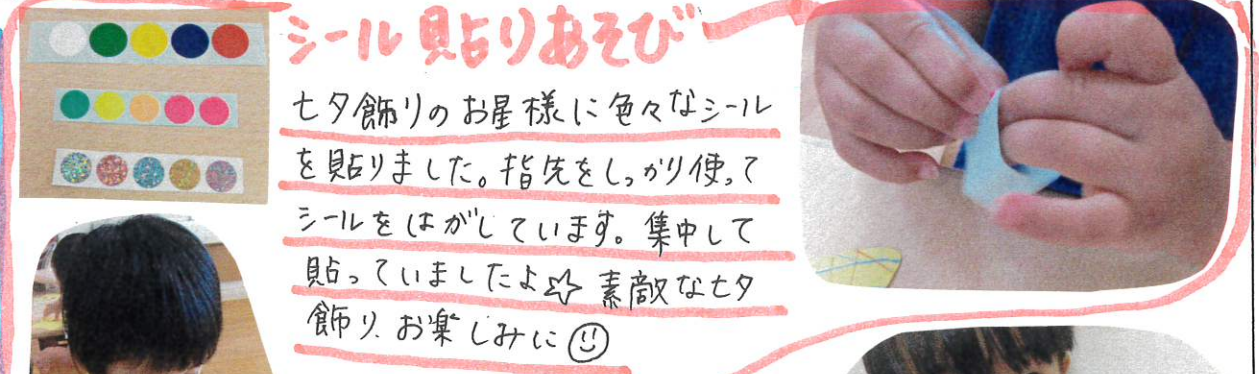 シール貼りあそび
七夕飾りのお星様に色々なシール
を貼りました。指先をしっかり使って
シールをはがしています。集中して
貼っていましたよ☆ 素敵な七夕
飾り、お楽しみに☺